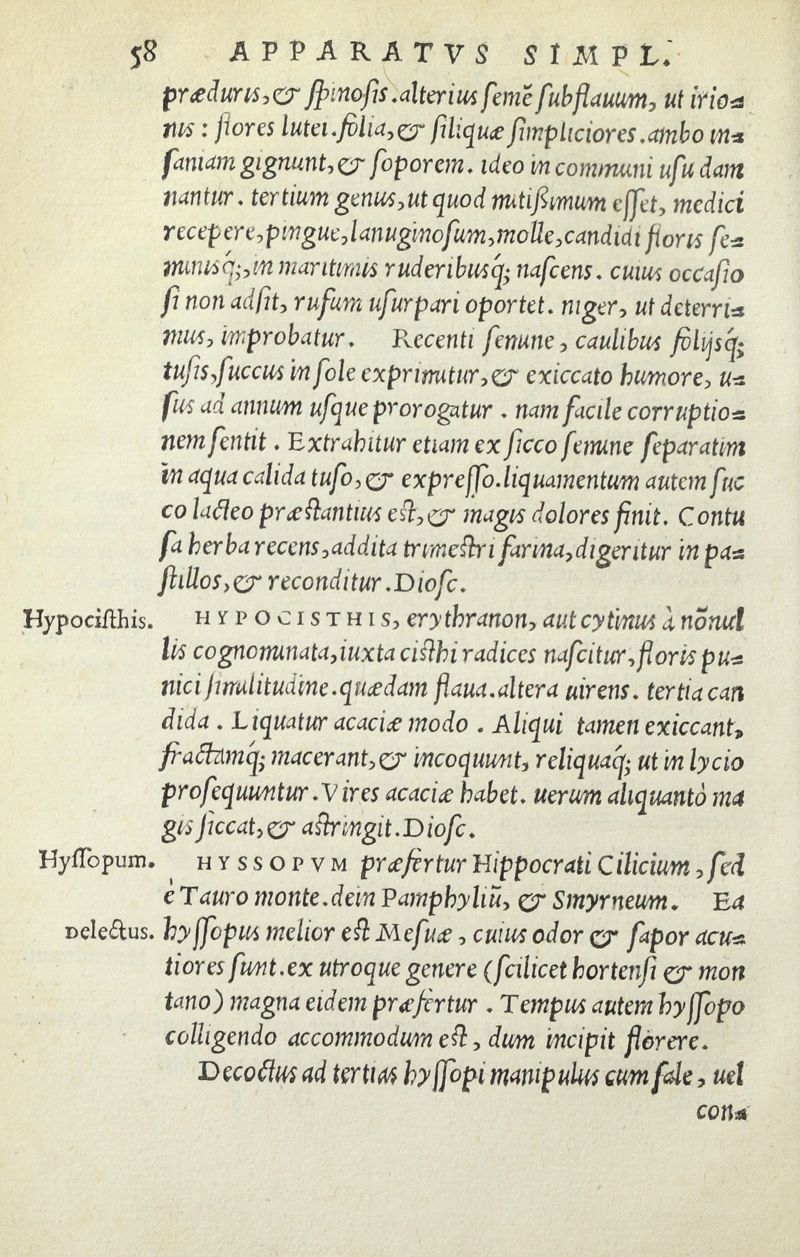 58 APPARATVS SIMPL.
præduris, & ſpinoſis. alterius ſemẽ ſubflauum, ut irio-
nis: flores lutei. folia, & ſiliquæ ſimpliciores. ambo in-
ſaniam gignunt, & ſoporem. ideo in communi uſu dam
nantur. tertium genus, ut quod mitiſsimum eſſet, medici
recepere, pingue, lanuginoſum, molle, candidi floris ſe-
minisq́;, in maritimis ruderibusq́; naſcens. cuius occaſio
ſi non adſit, rufum uſurpari oportet. niger, ut deterri-
mus, improbatur. Recenti ſemine, caulibus folijsq́;
tuſis, ſuccus in ſole exprimitur, & exiccato humore, u-
ſus ad annum uſque prorogatur. nam facile corruptio-
nem ſentit. Extrahitur etiam ex ſicco ſemine ſeparatim
in aqua calida tuſo, & expreſſo. liquamentum autem ſuc
co lacteo præſtantius eſt, & magis dolores finit. Contu
ſa herba recens, addita trimeſtri farina, digeritur in pa-
ſtillos, & reconditur. Dioſc.
Hypociſthis. HYPOCISTHIS, erythranon, aut cytinus à nõnul
lis cognominata, iuxta ciſthi radices naſcitur, floris pu-
nici ſimilitudine. quædam flaua. altera uirens. tertia can
dida. Liquatur acaciæ modo. Aliqui tamen exiccant,
fractamq́; macerant, & incoquunt, reliquaq́; ut in lycio
proſequuntur. Vires acaciæ habet. uerum aliquantò ma
gis ſiccat, & aſtringit. Dioſc.
Hyſſopum. HYSSOPVM præfertur Hippocrati Cilicium, ſed
è Tauro monte. dein Pamphyliũ, & Smyrneum. Ea
Delectus. hyſſopus melior eſt Meſuæ, cuius odor & ſapor acu-
tiores ſunt. ex utroque genere (ſcilicet hortenſi & mon
tano) magna eidem præfertur. Tempus autem hyſſopo
colligendo accommodum eſt, dum incipit florere.
Decoctus ad tertias hyſſopi manipulus cum ſale, uel
con-